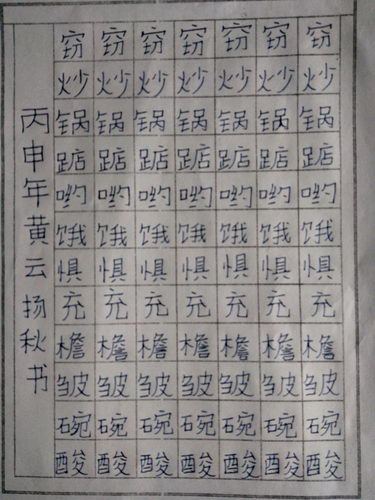 丙申年黄云扬秋书
窃窃窃窃窃窃窃
炒炒炒炒炒炒炒
锅锅锅锅锅锅锅
踮踮踮踮踮踮踮
哟哟哟哟哟哟哟
饿饿饿饿饿饿饿
惧惧惧惧惧惧惧
充充充充充充充
檐檐檐檐檐檐檐
皱皱皱皱皱皱皱
碗碗碗碗碗碗碗
酸酸酸酸酸酸酸